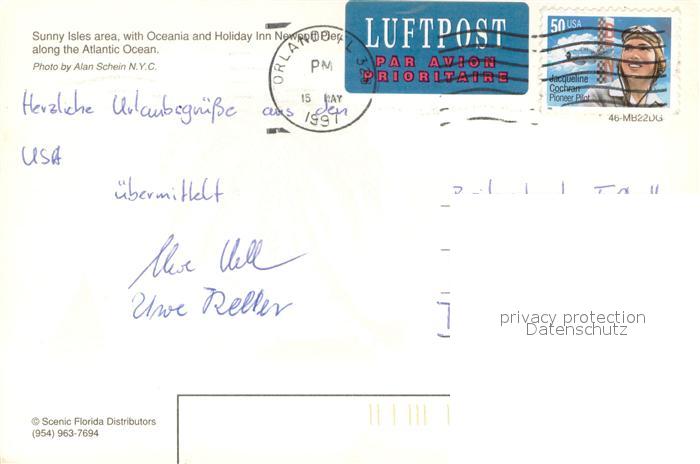 Sunny Isles area, with Oceania and Holiday Inn Newport Pier,
along the Atlantic Ocean.
Photo by Alan Schein N.Y.C.
ORLANDO FL 328
PM
15 MAY
1997
LUFTPOST
PAR AVION
PRIORITAIRE
50 USA
Jacqueline
Cochran
Pioneer Pilot
46-MB22DG
Herzliche Urlaubsgrüße aus den
USA
übermittelt
Uwe
privacy protection
Datenschutz
© Scenic Florida Distributors
(954) 963-7694